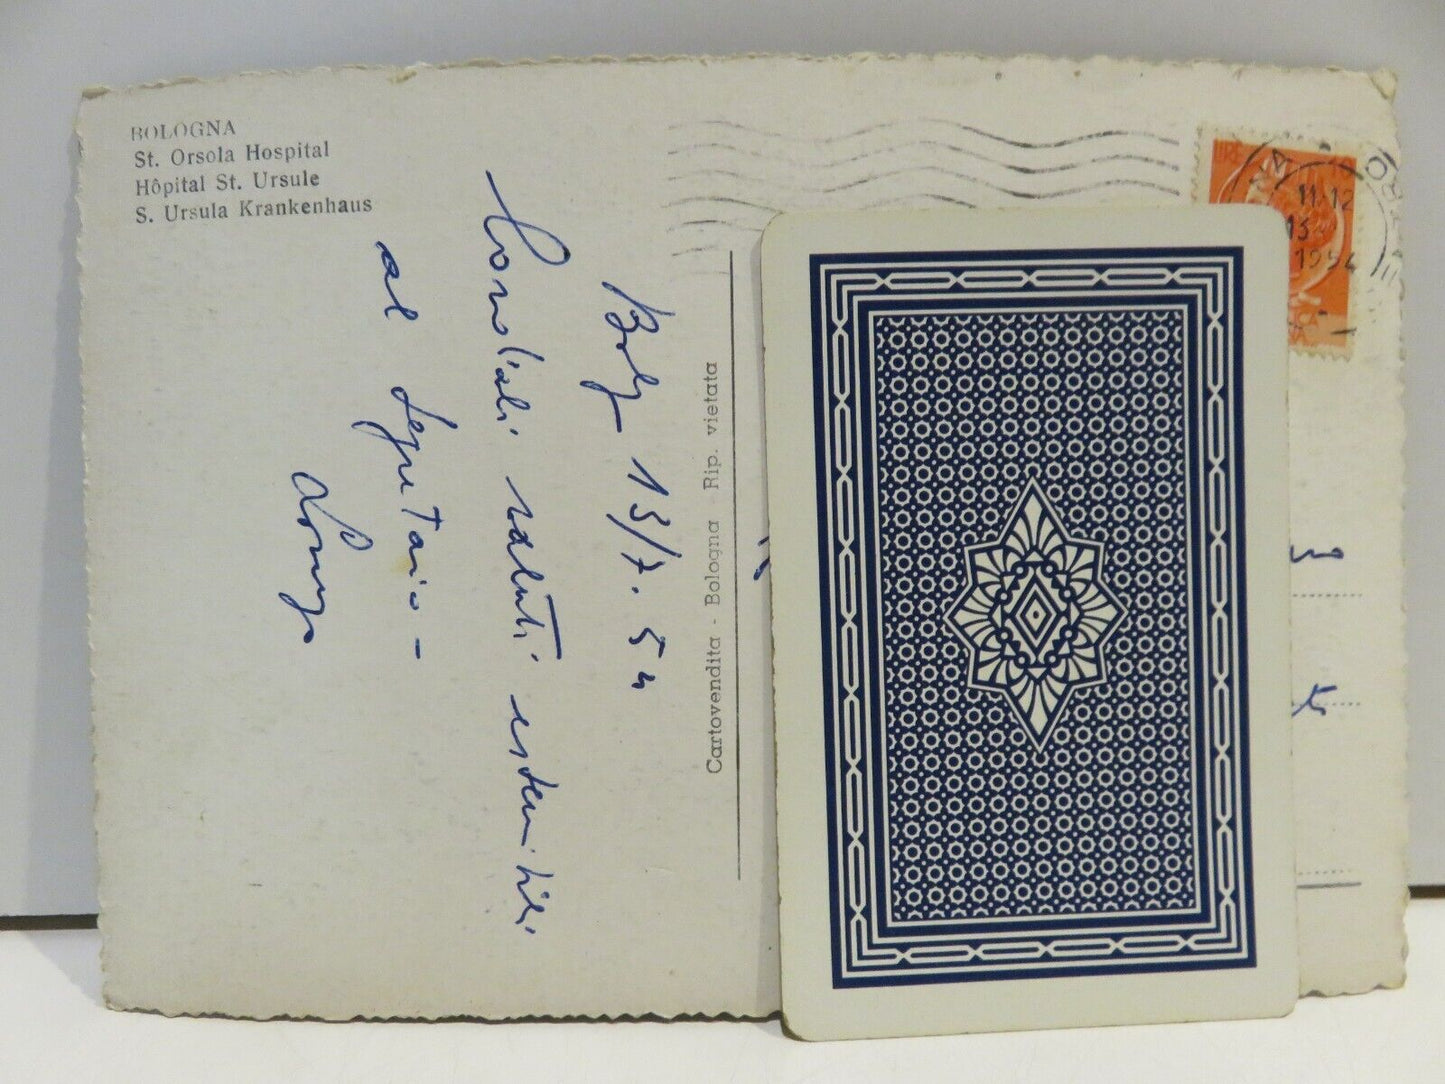 BOLOGNA
St. Orsola Hospital
Hôpital St. Ursule
S. Ursula Krankenhaus
Bol 13/7.54
Cordiali saluti
al segretario -
Cartovendita - Bologna Rip. vietata
LIRE 10
11.12
13
1954